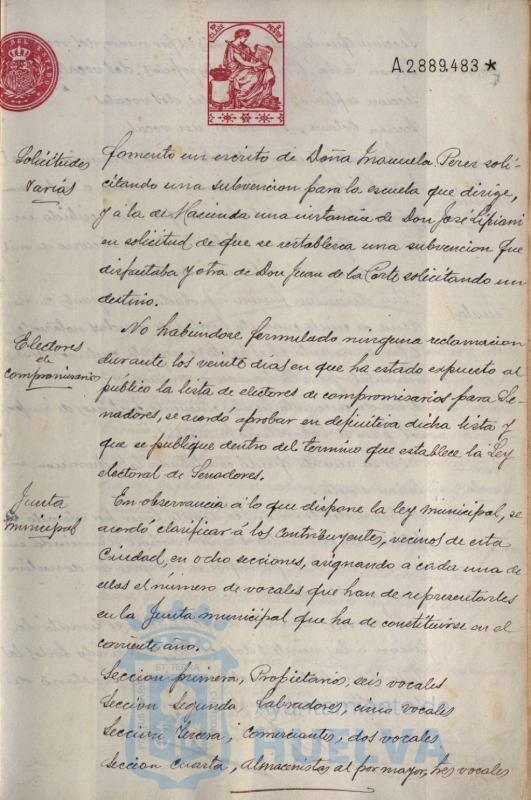 A.2.889.483*
Solicitudes
varias
fomento un escrito de Doña Manuela Perez soli-
citando una subvencion para la escuela que dirige,
y á la de Hacienda una instancia de Don José Lipiani
en solicitud de que se restablezca una subvencion que
disfrutaba y otra de Don Juan de la Corte solicitando un
destino.
Electores
de
compromisarios
No habiendose formulado ninguna reclamacion
durante los veinte dias en que ha estado expuesto al
publico la lista de electores de compromisarios para Se-
nadores, se acordó aprobar en definitiva dicha lista y
que se publique dentro del termino que establece la Ley
electoral de Senadores.
Junta
municipal
En observancia á lo que dispone la ley municipal, se
acordó clasificar á los contribuyentes, vecinos de esta
Ciudad, en ocho secciones, asignando á cada una de
ellas el número de vocales que han de representarles
en la Junta municipal que ha de constituirse en el
corriente año.
Seccion primera, Propietarios, seis vocales
Seccion Segunda, Labradores, cinco vocales
Seccion Tercera, Comerciantes, dos vocales
Seccion Cuarta, Almacenistas al por mayor, tres vocales
Ayuntamiento
HUELVA